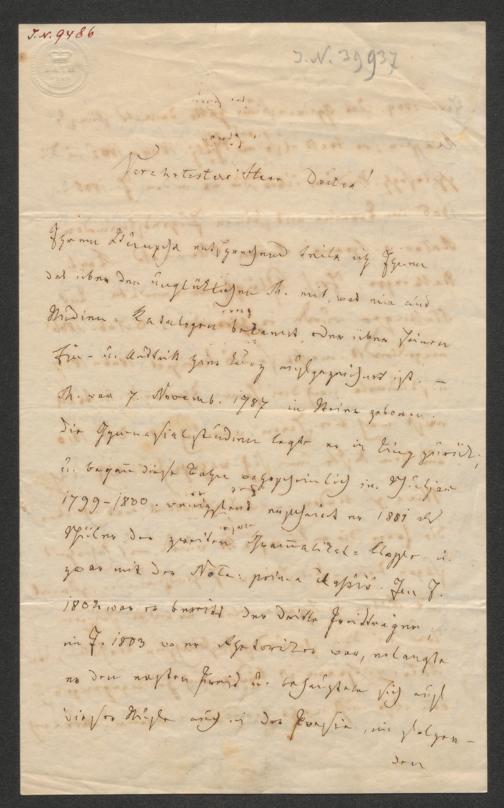 I.N. 9486
I.N. 39937
Verehrtester Herr Doctor!
Ihrem Wunsche entsprechend theile ich Ihnen
das über den unglücklichen M. mit, was mir aus
Studien-Katalogen bekannt, oder über seinen
Ein- u. Austritt ganz kurz aufgezeichnet ist. –
M. war 7. Novemb. 1787 in Steier geboren.
Die Gymnasialstudien legte er in Linz zurück,
u. begann diese Bahn wahrscheinlich im Schuljahr
1799–1800. wenigstens erscheint er 1801 als
Schüler der zweiten Grammatikal-Classe u.
zwar mit der Note: prima classis. Im J.
1802 war er bereits der dritte Preisträger,
im J. 1803 wo er Rhetoriker war, erlangte
er den ersten Preis u. behauptete sich auf
dieser Stufe auch in der Poesie, im folgen-
den